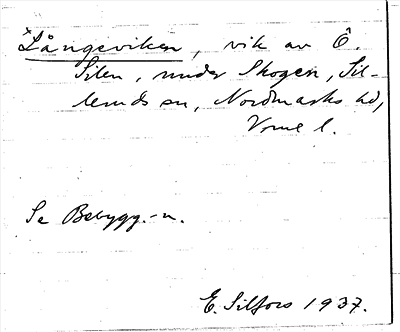 *Långeviken, vik av Ö.
Silen, under Skogen, Sil-
leruds sn, Nordmarks hd,
Vrml l.
Se Bebygg.-n.
E. Silfors 1937.